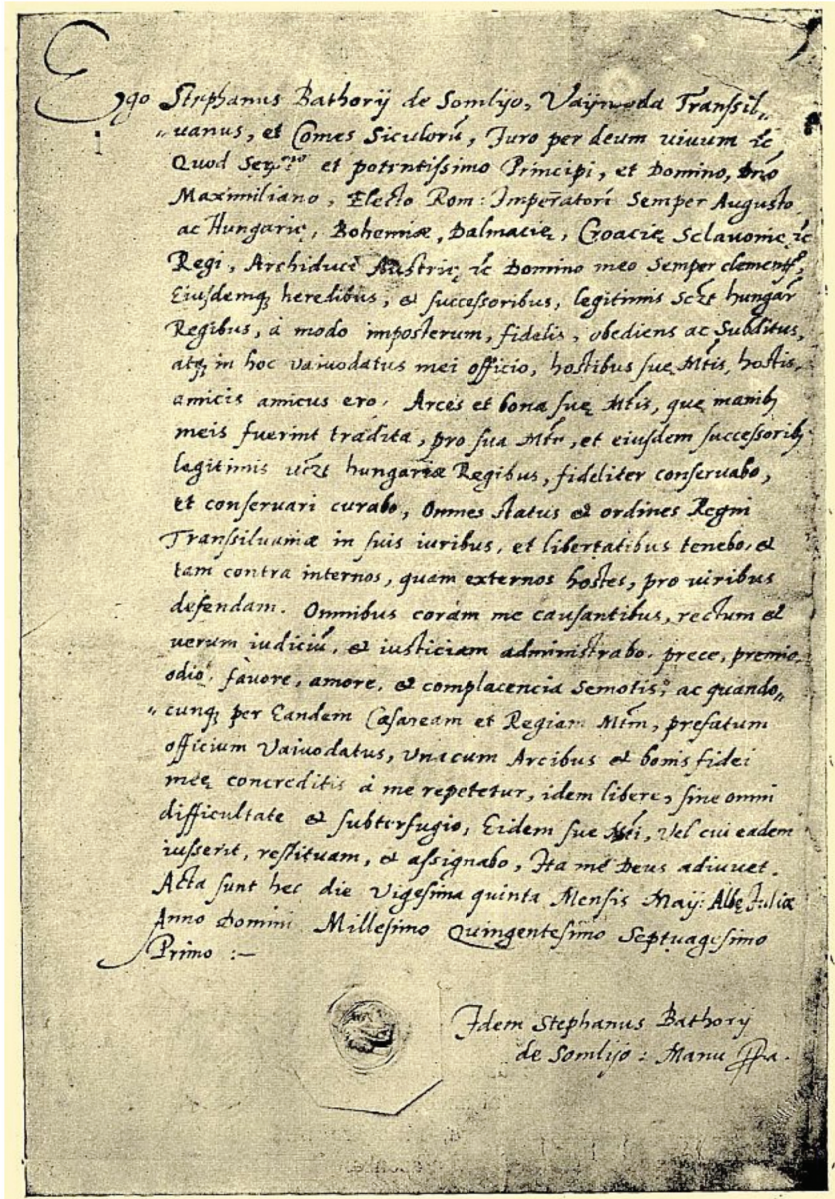 Ego Stephanus Bathorÿ de Somlÿo, Vaÿwoda Transsil„
„uanus, et Comes Siculorū, Juro per deum viuum ꝛc̃
Quod Ser.mo et potentissimo Principi, et Domino, Dño
Maximiliano, Electo Rom: Imperatori Semper Augusto
ac Hungarię, Bohemiæ, Dalmacię, Croacię Sclauonię ꝛc̃
Regi, Archiduci Austrię ꝛc̃ Domino meo Semper clementss,
Eiusdemq heredibus, & successoribus, legitimis Sczt hungar
Regibus, á modo imposterum, fidelis, obediens ac Subditus,
atq in hoc vaiuodatus mei officio, hostibus suę Mtis, hostis,
amicis amicus ero. Arces et bona suę Mtis, que manib
meis fuerint tradita, pro sua Mte, et eiusdem successorib
legitimis vczt hungariæ Regibus, fideliter conseruabo,
et conseruari curabo, Omnes status & ordines Regni
Transsiluaniæ in suis iuribus, et libertatibus tenebo, &
tam contra internos, quam externos hostes, pro viribus
defendam. Omnibus coram me causantibus, rectum &
verum iudiciū, & iusticiam administrabo. prece, premio,
odio, fauore, amore, & complacencia Semotis, ac quando„
„cunq per Eandem Cæsaream et Regiam Mtm, prefatum
officium Vaiuodatus, vnacum Arcibus & bonis fidei
meę concreditis á me repetetur, idem libere, sine omni
difficultate & subterfugio, Eidem sue Mti, vel cui eadem
iusserit, restituam, & assignabo, Ita me Deus adiuuet.
Acta sunt hec die vigesima quinta Mensis Maÿ: Albę Juliæ
Anno Domini Millesimo Quingentesimo Septuagesimo
Primo :~
Idem Stephanus Bathorÿ
de Somlÿo: Manu Ppa.